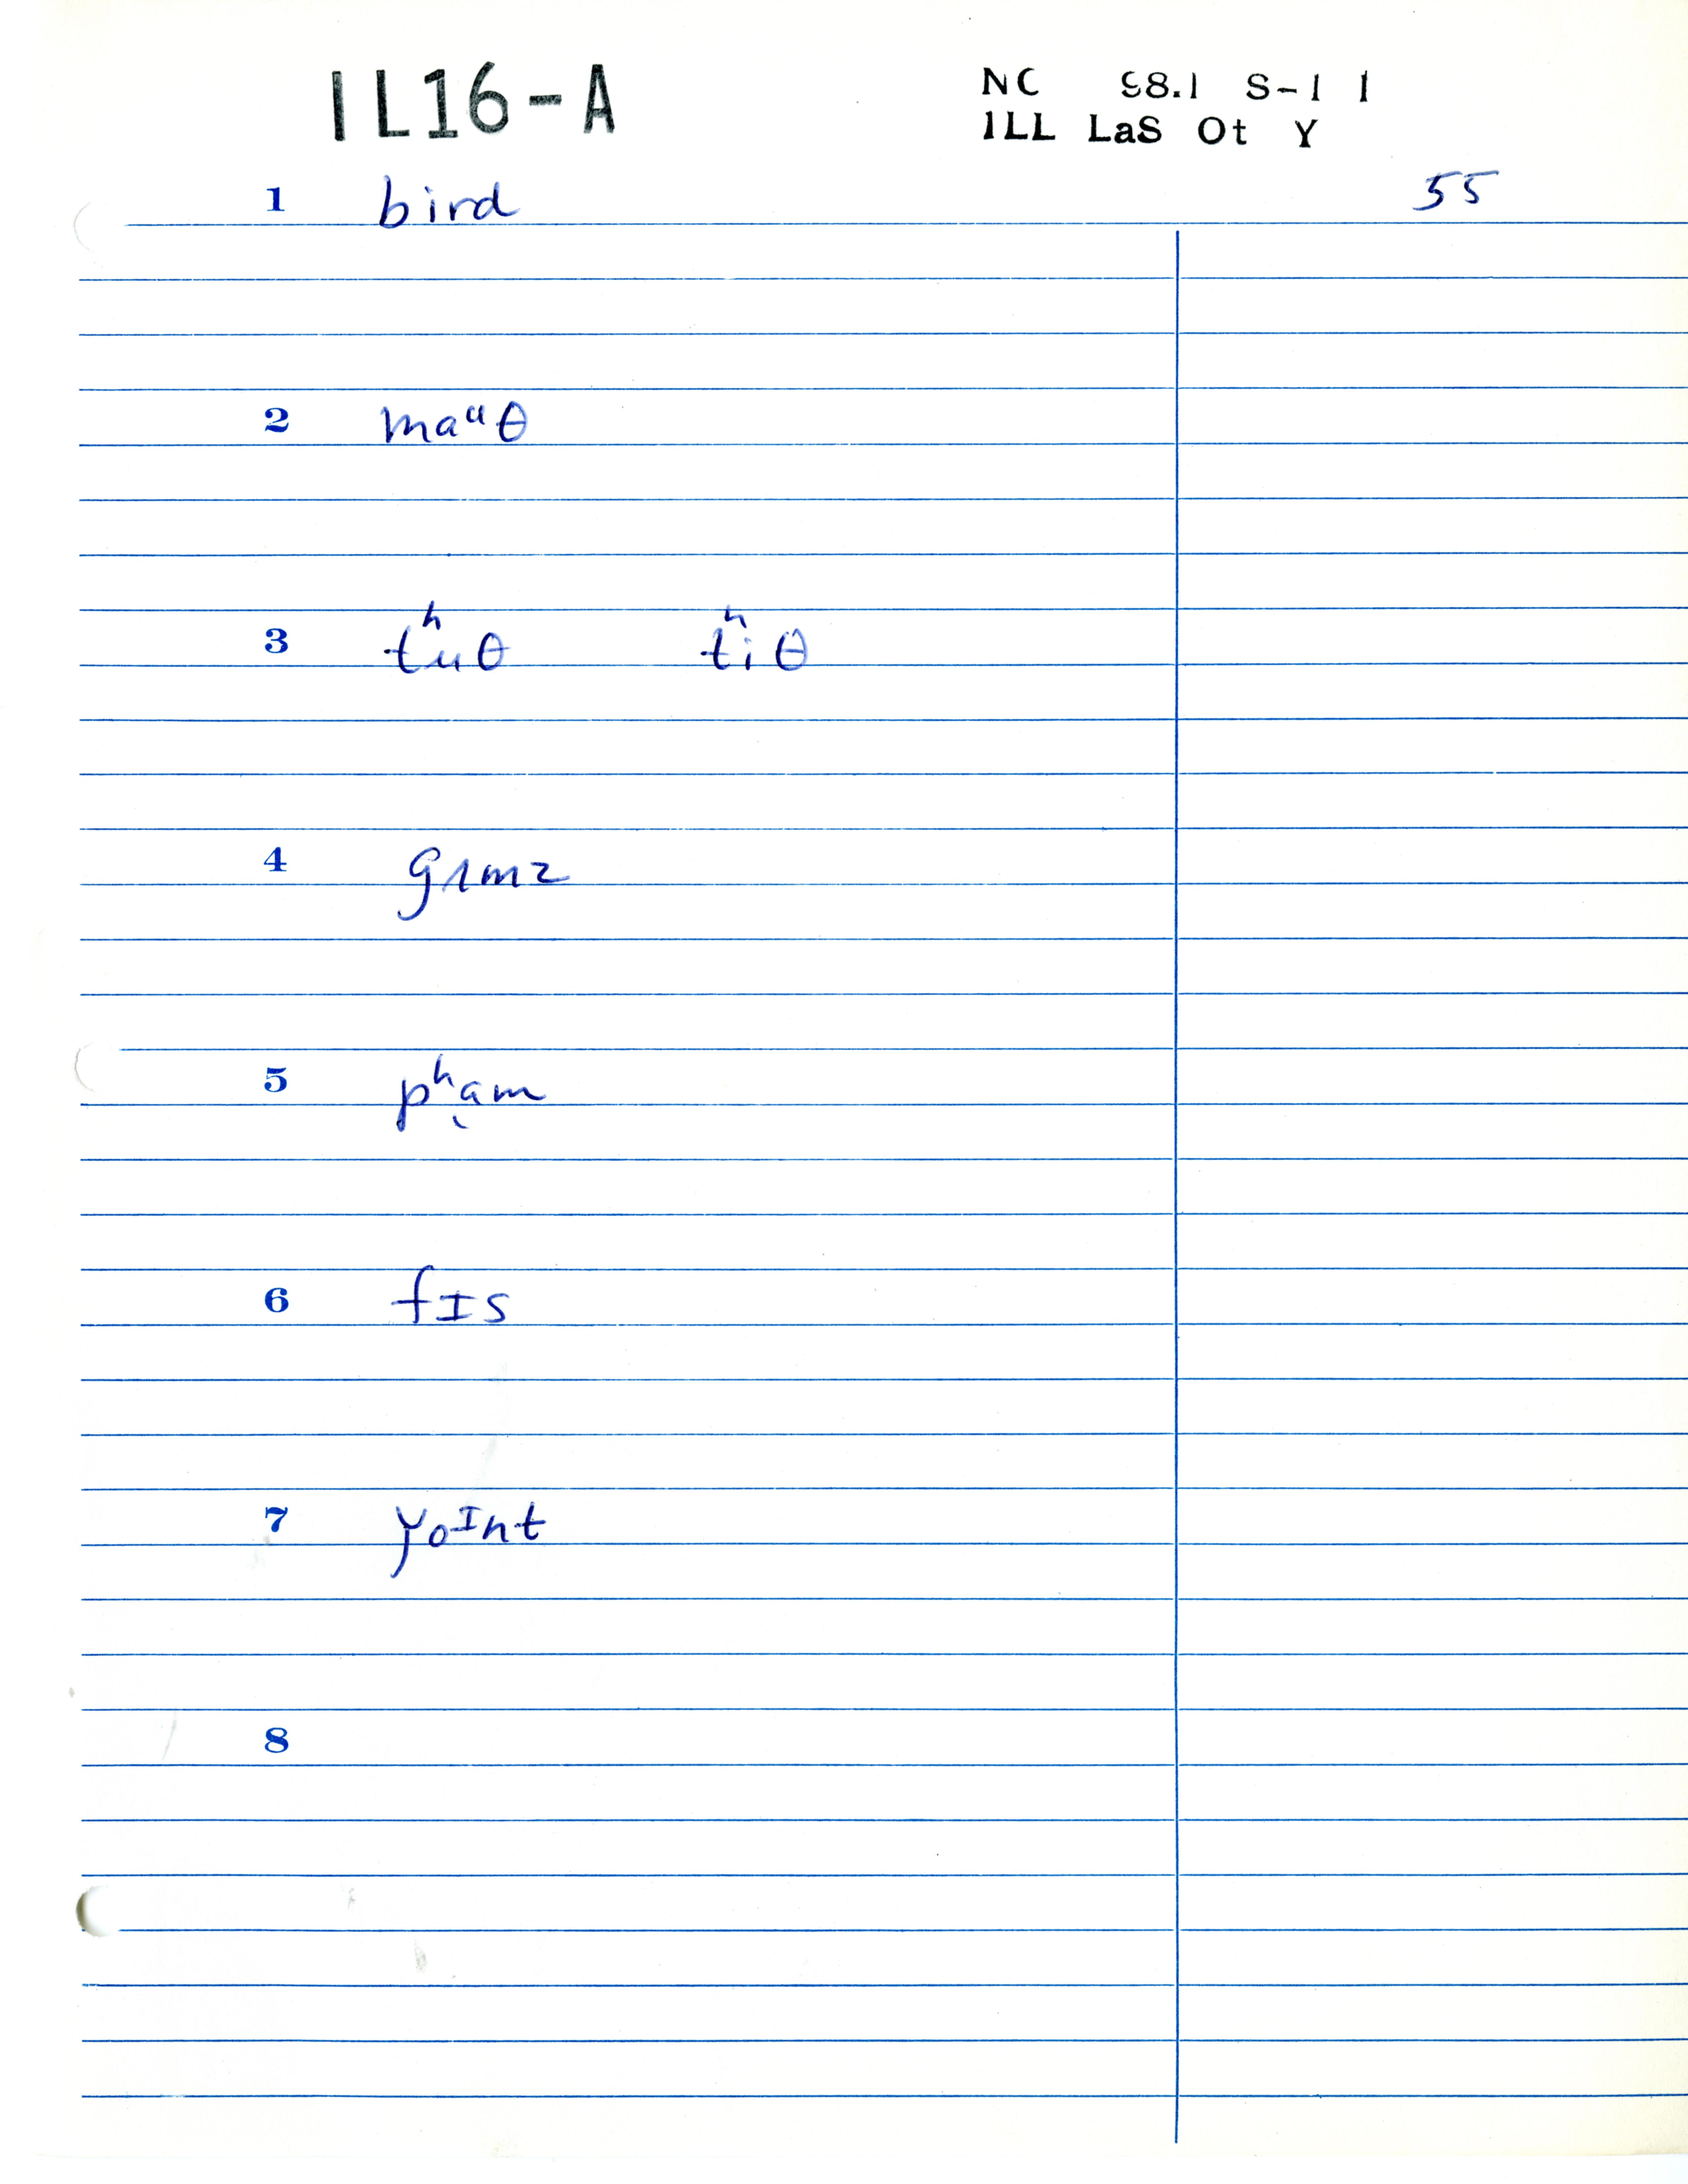 IL16-A
NC 98.1 S-11
ILL LaS Ot Y
1 bird 55
2 maᵘθ
3 tʰuθ tʰiθ
4 gʌmz
5 pʰa̠m
6 fɪs
7 yoᴵnt
8